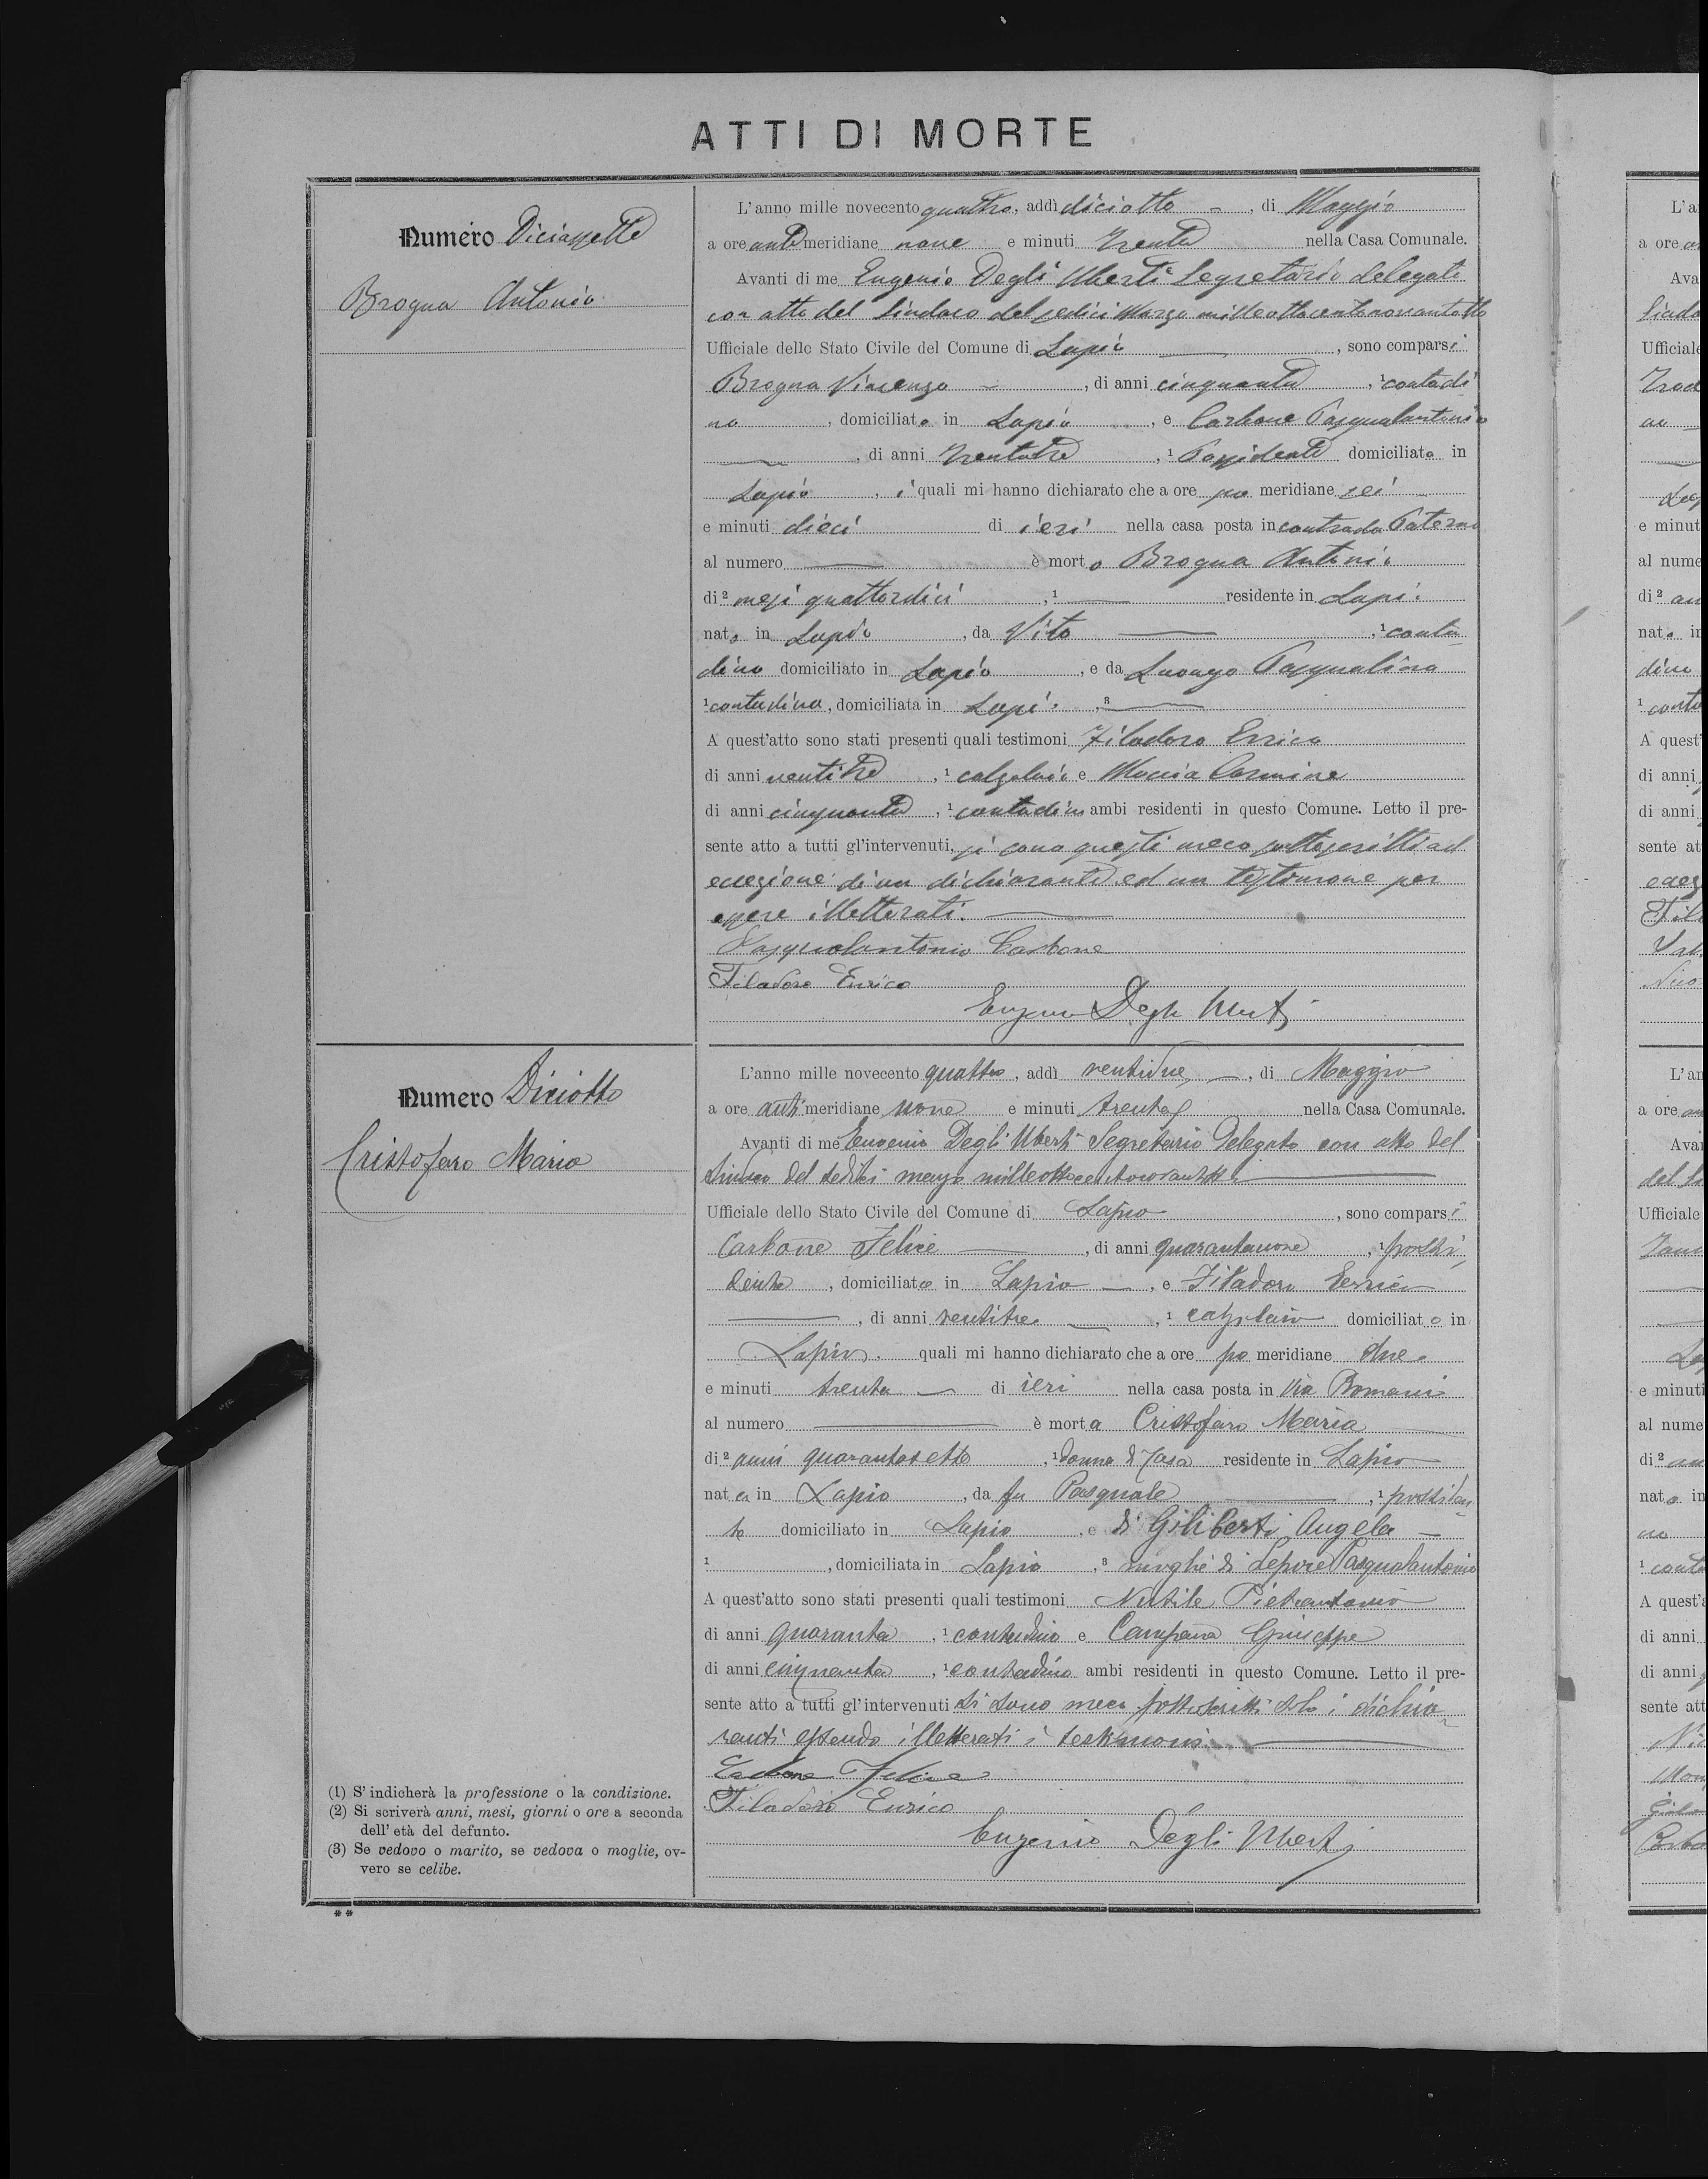 ATTI DI MORTE
Numero Diciassette
Brogna Antonio
L'anno mille novecento quattro, addì diciotto, di Maggio
a ore antimeridiane nove e minuti trenta nella Casa Comunale.
Avanti di me Eugenio Degli Uberti Segretario delegato
con atto del Sindaco del sedici Marzo milleottocentonovantotto
Ufficiale dello Stato Civile del Comune di Lapio, sono comparsi
Brogna Vincenzo, di anni cinquanta, ¹ contadi
no, domiciliato in Lapio, e Carbone Pasqualantonio
, di anni trentatre, ¹ Possidente domiciliato in
Lapio, i quali mi hanno dichiarato che a ore po meridiane sei
e minuti dieci di ieri nella casa posta in contrada Paterno
al numero è morto Brogna Antonio
di ² mesi quattordici, ¹ residente in Lapio
nato in Lapio, da Vito, ¹ conta
dino domiciliato in Lapio, e da Luongo Pasqualina
¹ contadina, domiciliata in Lapio, ³
A quest'atto sono stati presenti quali testimoni Filadoro Errico
di anni ventitre, ¹ calzolaio e Moccia Carmine
di anni cinquanta, ¹ contadino ambi residenti in questo Comune. Letto il pre-
sente atto a tutti gl'intervenuti, si sono questi meco sottoscritti ad
eccezione di un dichiarante ed un testimone per
essere illetterati.
Pasqualantonio Carbone
Filadoro Enrico
Eugenio Degli Uberti
Numero Diciotto
Cristofaro Maria
L'anno mille novecento quattro, addì ventidue, di Maggio
a ore antimeridiane nove e minuti trenta nella Casa Comunale.
Avanti di me Eugenio Degli Uberti Segretario Delegato con atto del
Sindaco del sedici marzo milleottocentonovantotto
Ufficiale dello Stato Civile del Comune di Lapio, sono comparsi
Carbone Felice, di anni quarantanove, ¹ possi
dente, domiciliato in Lapio, e Filadoro Errico
, di anni ventitre, ¹ calzolaio domiciliato in
Lapio, quali mi hanno dichiarato che a ore po meridiane due
e minuti trenta di ieri nella casa posta in Via Romani
al numero è morta Cristofaro Maria
di ² anni quarantasette, ¹ donna di casa residente in Lapio
nata in Lapio, da fu Pasquale, ¹ possiden
te domiciliato in Lapio, e di Giliberti Angela
¹ , domiciliata in Lapio, ³ moglie di Lepore Pasqualantonio
A quest'atto sono stati presenti quali testimoni Nutile Pietrantonio
di anni quaranta, ¹ contadino e Campana Giuseppe
di anni cinquanta, ¹ contadino ambi residenti in questo Comune. Letto il pre-
sente atto a tutti gl'intervenuti si sono meco sottoscritti solo i dichia
ranti essendo illetterati i testimoni
Carbone Felice
Filadoro Enrico
Eugenio Degli Uberti
(1) S'indicherà la professione o la condizione.
(2) Si scriverà anni, mesi, giorni o ore a seconda
dell'età del defunto.
(3) Se vedovo o marito, se vedova o moglie, ov-
vero se celibe.
**